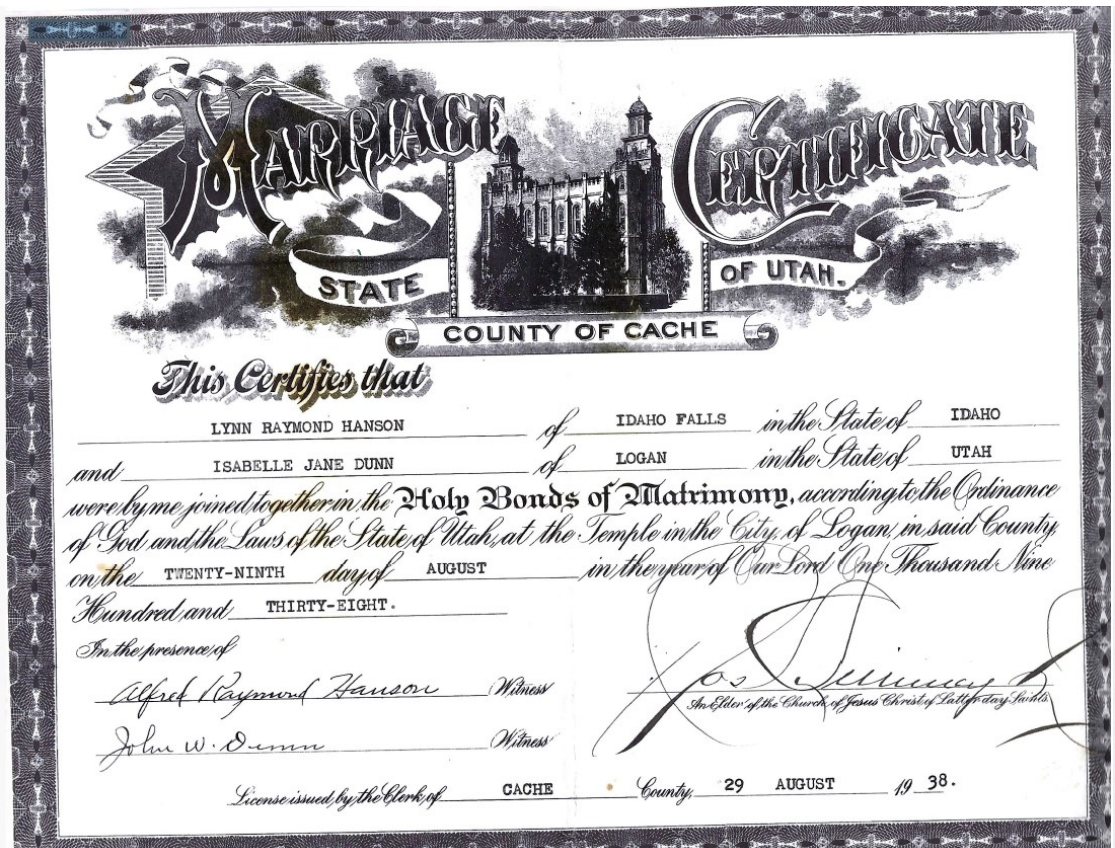 MARRIAGE CERTIFICATE
STATE OF UTAH.
COUNTY OF CACHE
This Certifies that
LYNN RAYMOND HANSON of IDAHO FALLS in the State of IDAHO
and ISABELLE JANE DUNN of LOGAN in the State of UTAH
were by me joined together in the Holy Bonds of Matrimony, according to the Ordinance
of God and the Laws of the State of Utah, at the Temple in the City of Logan, in said County,
on the TWENTY-NINTH day of AUGUST in the year of Our Lord One Thousand Nine
Hundred and THIRTY-EIGHT.
In the presence of
Alfred Raymond Hanson Witness
Jos
An Elder of the Church of Jesus Christ of Latter-day Saints.
John W. Dunn Witness
License issued by the Clerk of CACHE County, 29 AUGUST 19 38.